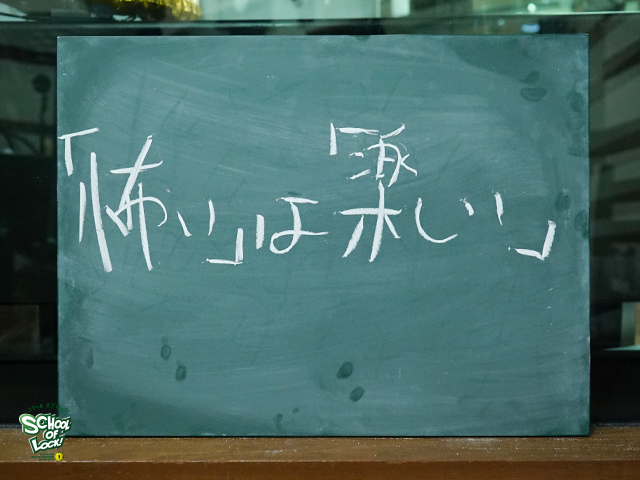 「怖い」は「楽しい」
SCHOOL
OF
LOCK!